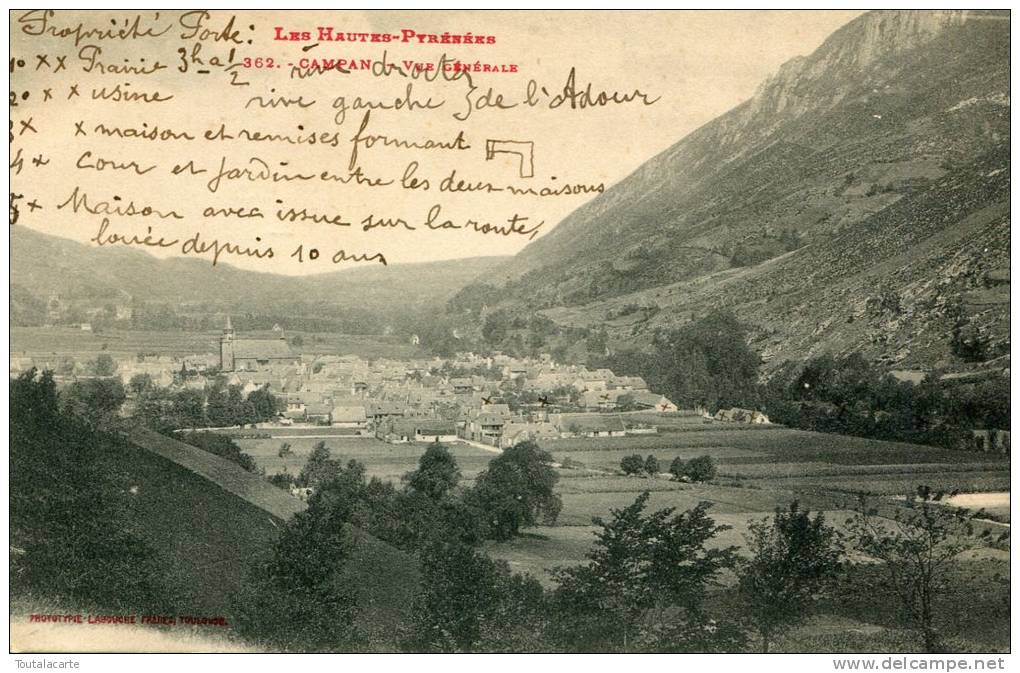 Propriété Porte:
LES HAUTES-PYRÉNÉES
362. - CAMPAN - VUE GÉNÉRALE
1º xx Prairie 3ha 1/2 rive droite
2º x x usine rive gauche } de l'Adour
3x x maison et remises formant
4x Cour et Jardin entre les deux maisons
5x Maison avec issue sur la route,
louée depuis 10 ans
PHOTOTYPIE LABOUCHE FRÈRES, TOULOUSE.
Toutalacarte
www.delcampe.net